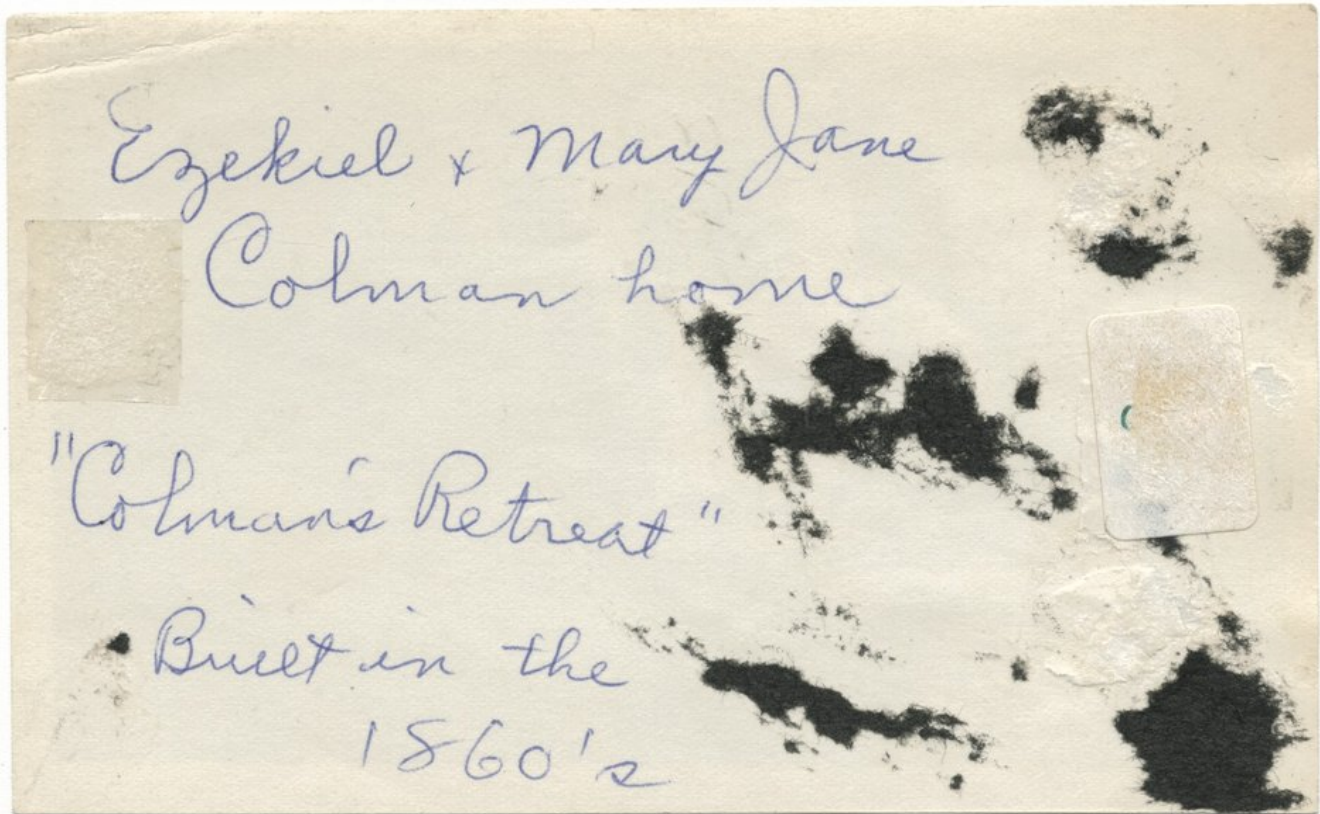 Ezekiel & Mary Jane
Colman home
"Colman's Retreat"
Built in the
1860's